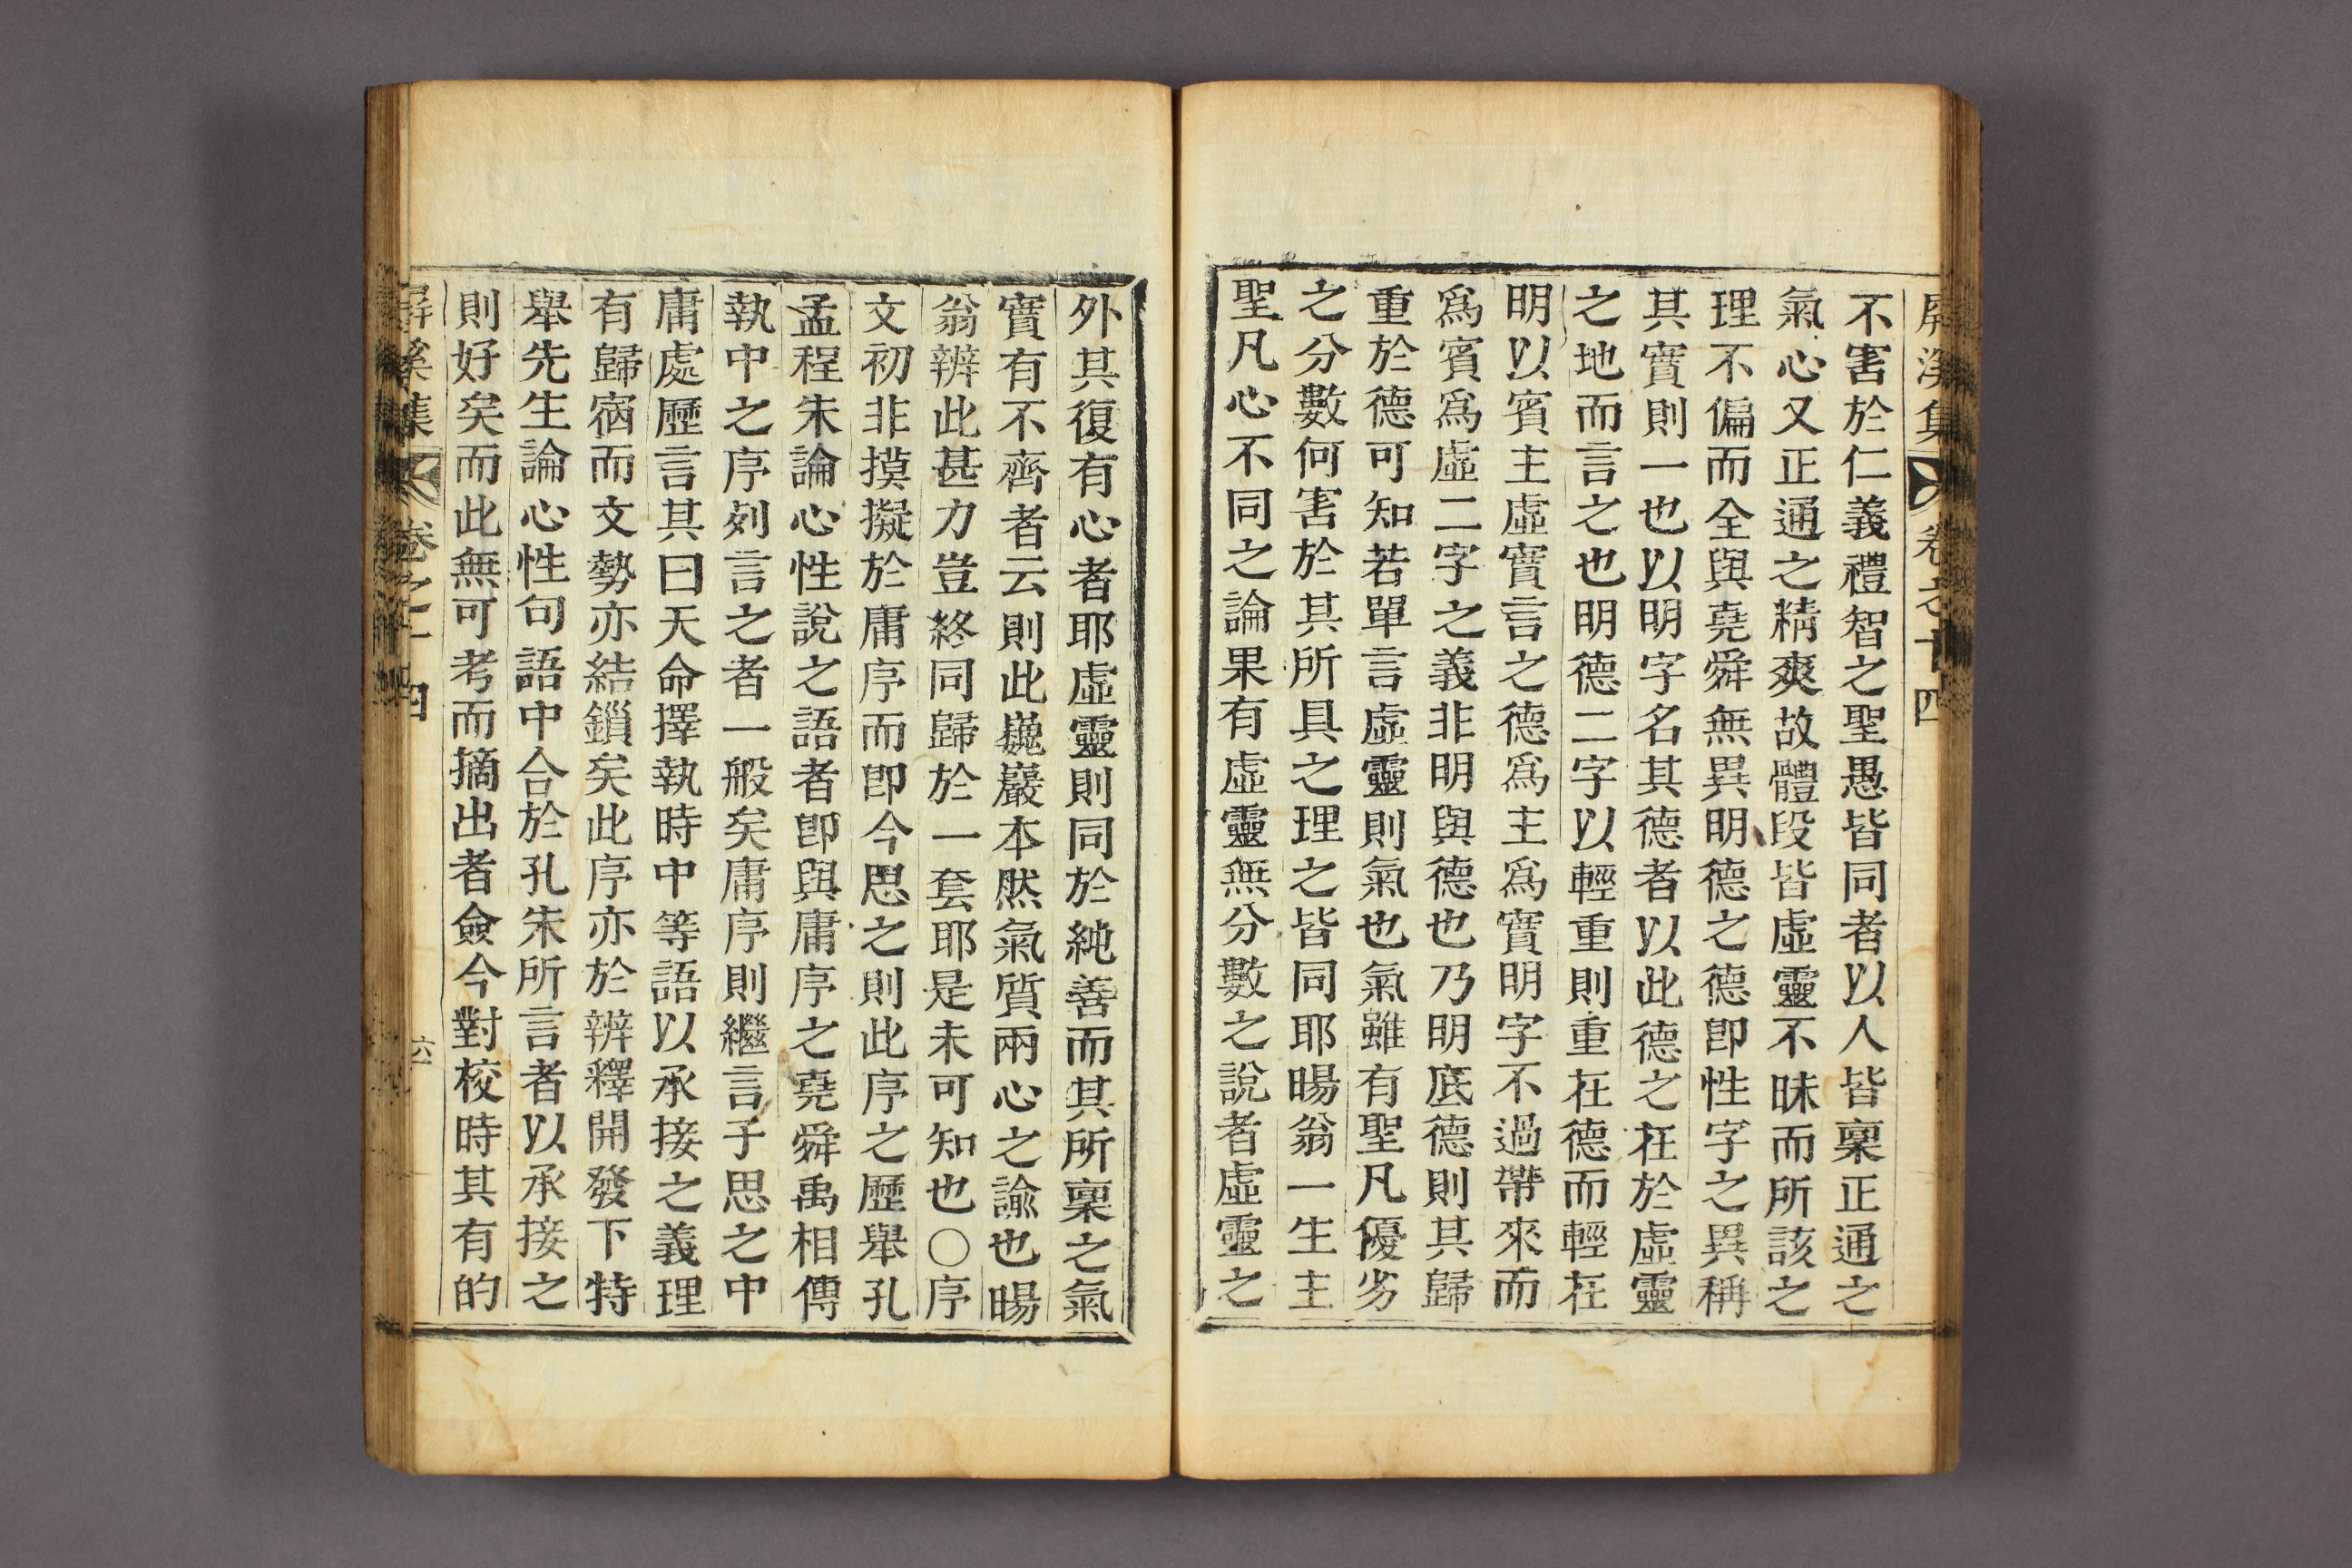 屏溪集 卷之十四
不害於仁義禮智之聖愚皆同者以人皆稟正通之
氣心又正通之精爽故體段皆虛靈不昧而所該之
理不偏而全與堯舜無異明德之德卽性字之異稱
其實則一也以明字名其德者以此德之在於虛靈
之地而言之也明德二字以輕重則重在德而輕在
明以賓主虛實言之德爲主爲實明字不過帶來而
爲賓爲虛二字之義非明與德也乃明底德則其歸
重於德可知若單言虛靈則氣也氣雖有聖凡優劣
之分數何害於其所具之理之皆同耶暘翁一生主
聖凡心不同之論果有虛靈無分數之說者虛靈之
外其復有心者耶虛靈則同於純善而其所稟之氣
實有不齊者云則此巍巖本然氣質兩心之諭也暘
翁辨此甚力豈終同歸於一套耶是未可知也○序
文初非摸擬於庸序而卽今思之則此序之歷舉孔
孟程朱論心性說之語者卽與庸序之堯舜禹相傳
執中之序列言之者一般矣庸序則繼言子思之中
庸處歷言其曰天命擇執時中等語以承接之義理
有歸宿而文勢亦結鎖矣此序亦於辨釋開發下特
舉先生論心性句語中合於孔朱所言者以承接之
則好矣而此無可考而摘出者僉今對校時其有的
屏溪集 卷之十四 六